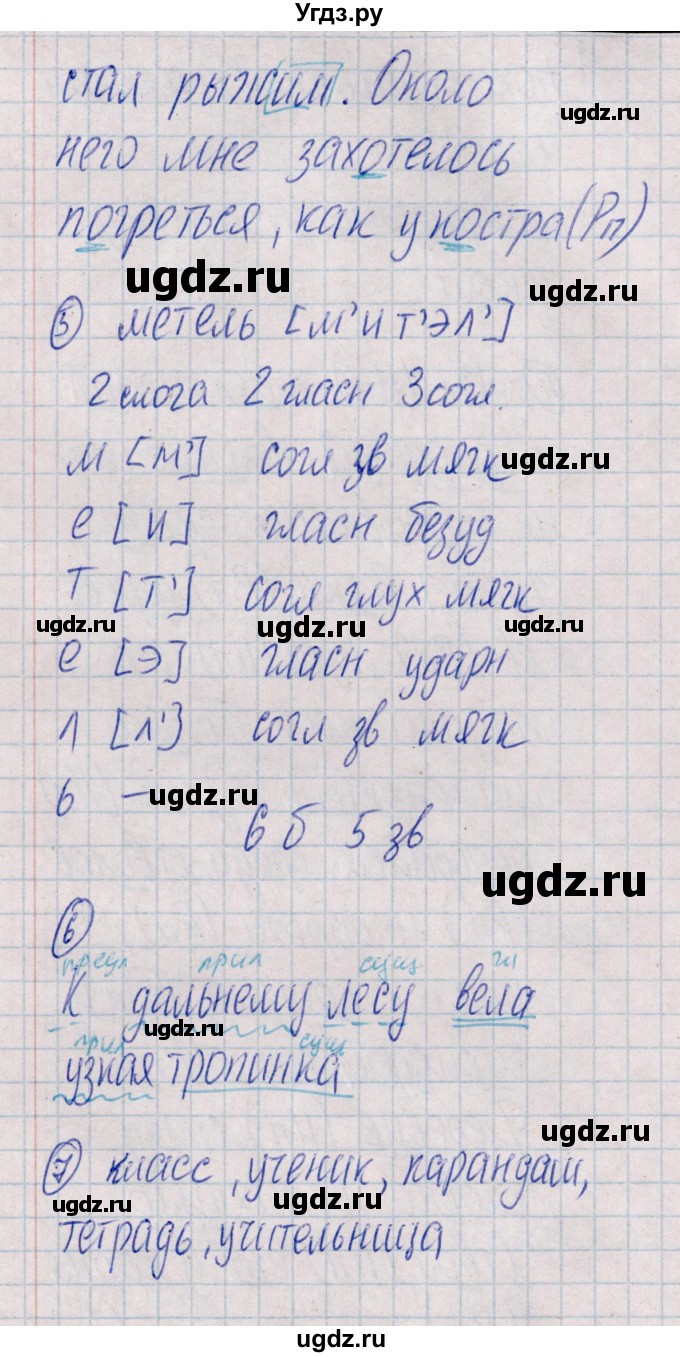 Угдз.ру
стал рыжим. Около
ugdz.ru
него мне захотелось
погреться, как у костра (Рп)
ugdz.ru
ugdz.ru
5 метель [м'ит'эл']
2 слога 2 гласн 3 согл.
м [м'] согл зв мягк
ugdz.ru
е [и] гласн безуд
т [т'] согл глух мягк
ugdz.ru ugdz.ru ugdz.ru
е [э] гласн ударн
л [л'] согл зв мягк
ь –
ugdz.ru
6 б 5 зв
ugdz.ru
6
предл прил сущ гл
К дальнему лесу вела
ugdz.ru ugdz.ru
прил сущ
узкая тропинка
ugdz.ru
7 класс, ученик, карандаш,
ugdz.ru ugdz.ru
тетрадь, учительница
ugdz.ru